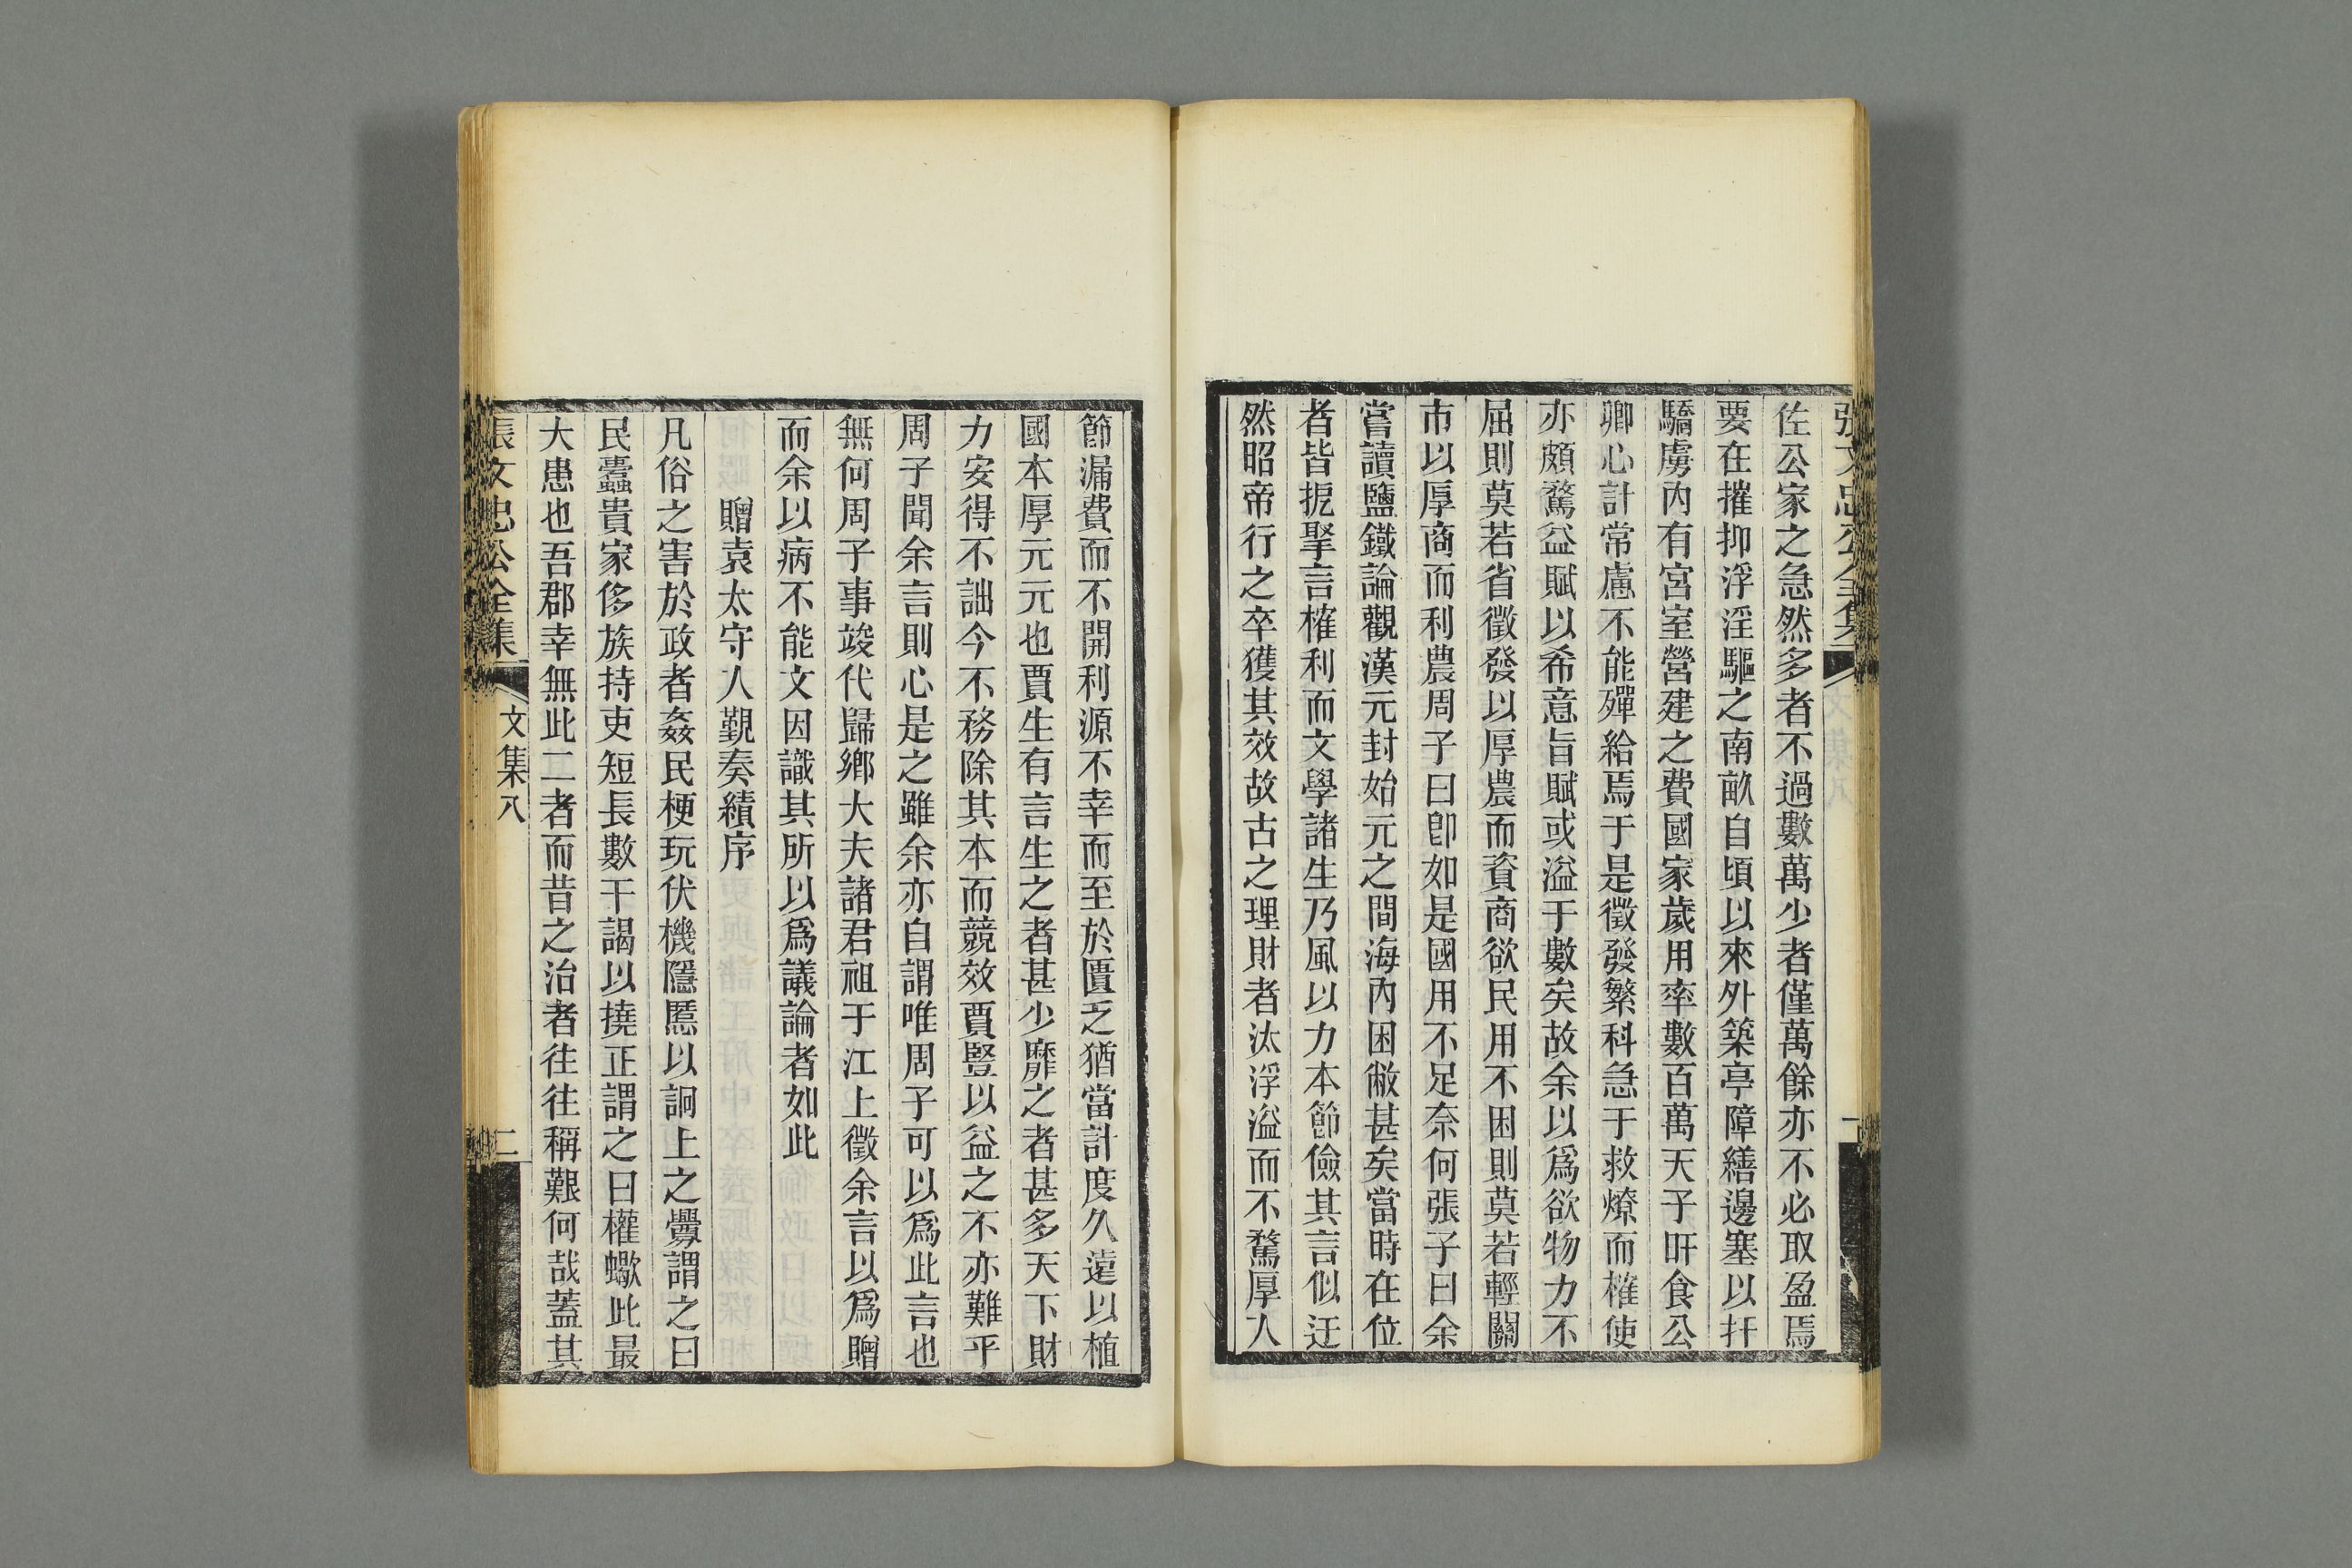 張文忠公全集
佐公家之急然多者不過數萬少者僅萬餘亦不必取盈焉
要在摧抑浮淫驅之南畝自頃以來外築亭障繕邊塞以扞
驕虜內有宮室營建之費國家歲用率數百萬天子旰食公
卿心計常慮不能殫給焉于是徵發繁科急于救燎而榷使
亦頗騖益賦以希意旨賦或溢于數矣故余以爲欲物力不
屈則莫若省徵發以厚農而資商欲民用不困則莫若輕關
市以厚商而利農周子曰卽如是國用不足奈何張子曰余
嘗讀鹽鐵論觀漢元封始元之間海內困敝甚矣當時在位
者皆扼掔言榷利而文學諸生乃風以力本節儉其言似迂
然昭帝行之卒獲其效故古之理財者汰浮溢而不騖厚入
節漏費而不開利源不幸而至於匱乏猶當計度久遠以植
國本厚元元也賈生有言生之者甚少靡之者甚多天下財
力安得不詘今不務除其本而競效賈豎以益之不亦難乎
周子聞余言則心是之雖余亦自謂唯周子可以爲此言也
無何周子事竣代歸鄉大夫諸君祖于江上徵余言以爲贈
而余以病不能文因識其所以爲議論者如此
贈袁太守入覲奏績序
凡俗之害於政者姦民梗玩伏機隱慝以詗上之釁謂之曰
民蠹貴家侈族持吏短長數干謁以撓正謂之曰權蠍此最
大患也吾郡幸無此二者而昔之治者往往稱艱何哉蓋其
張文忠公全集
文集八
二